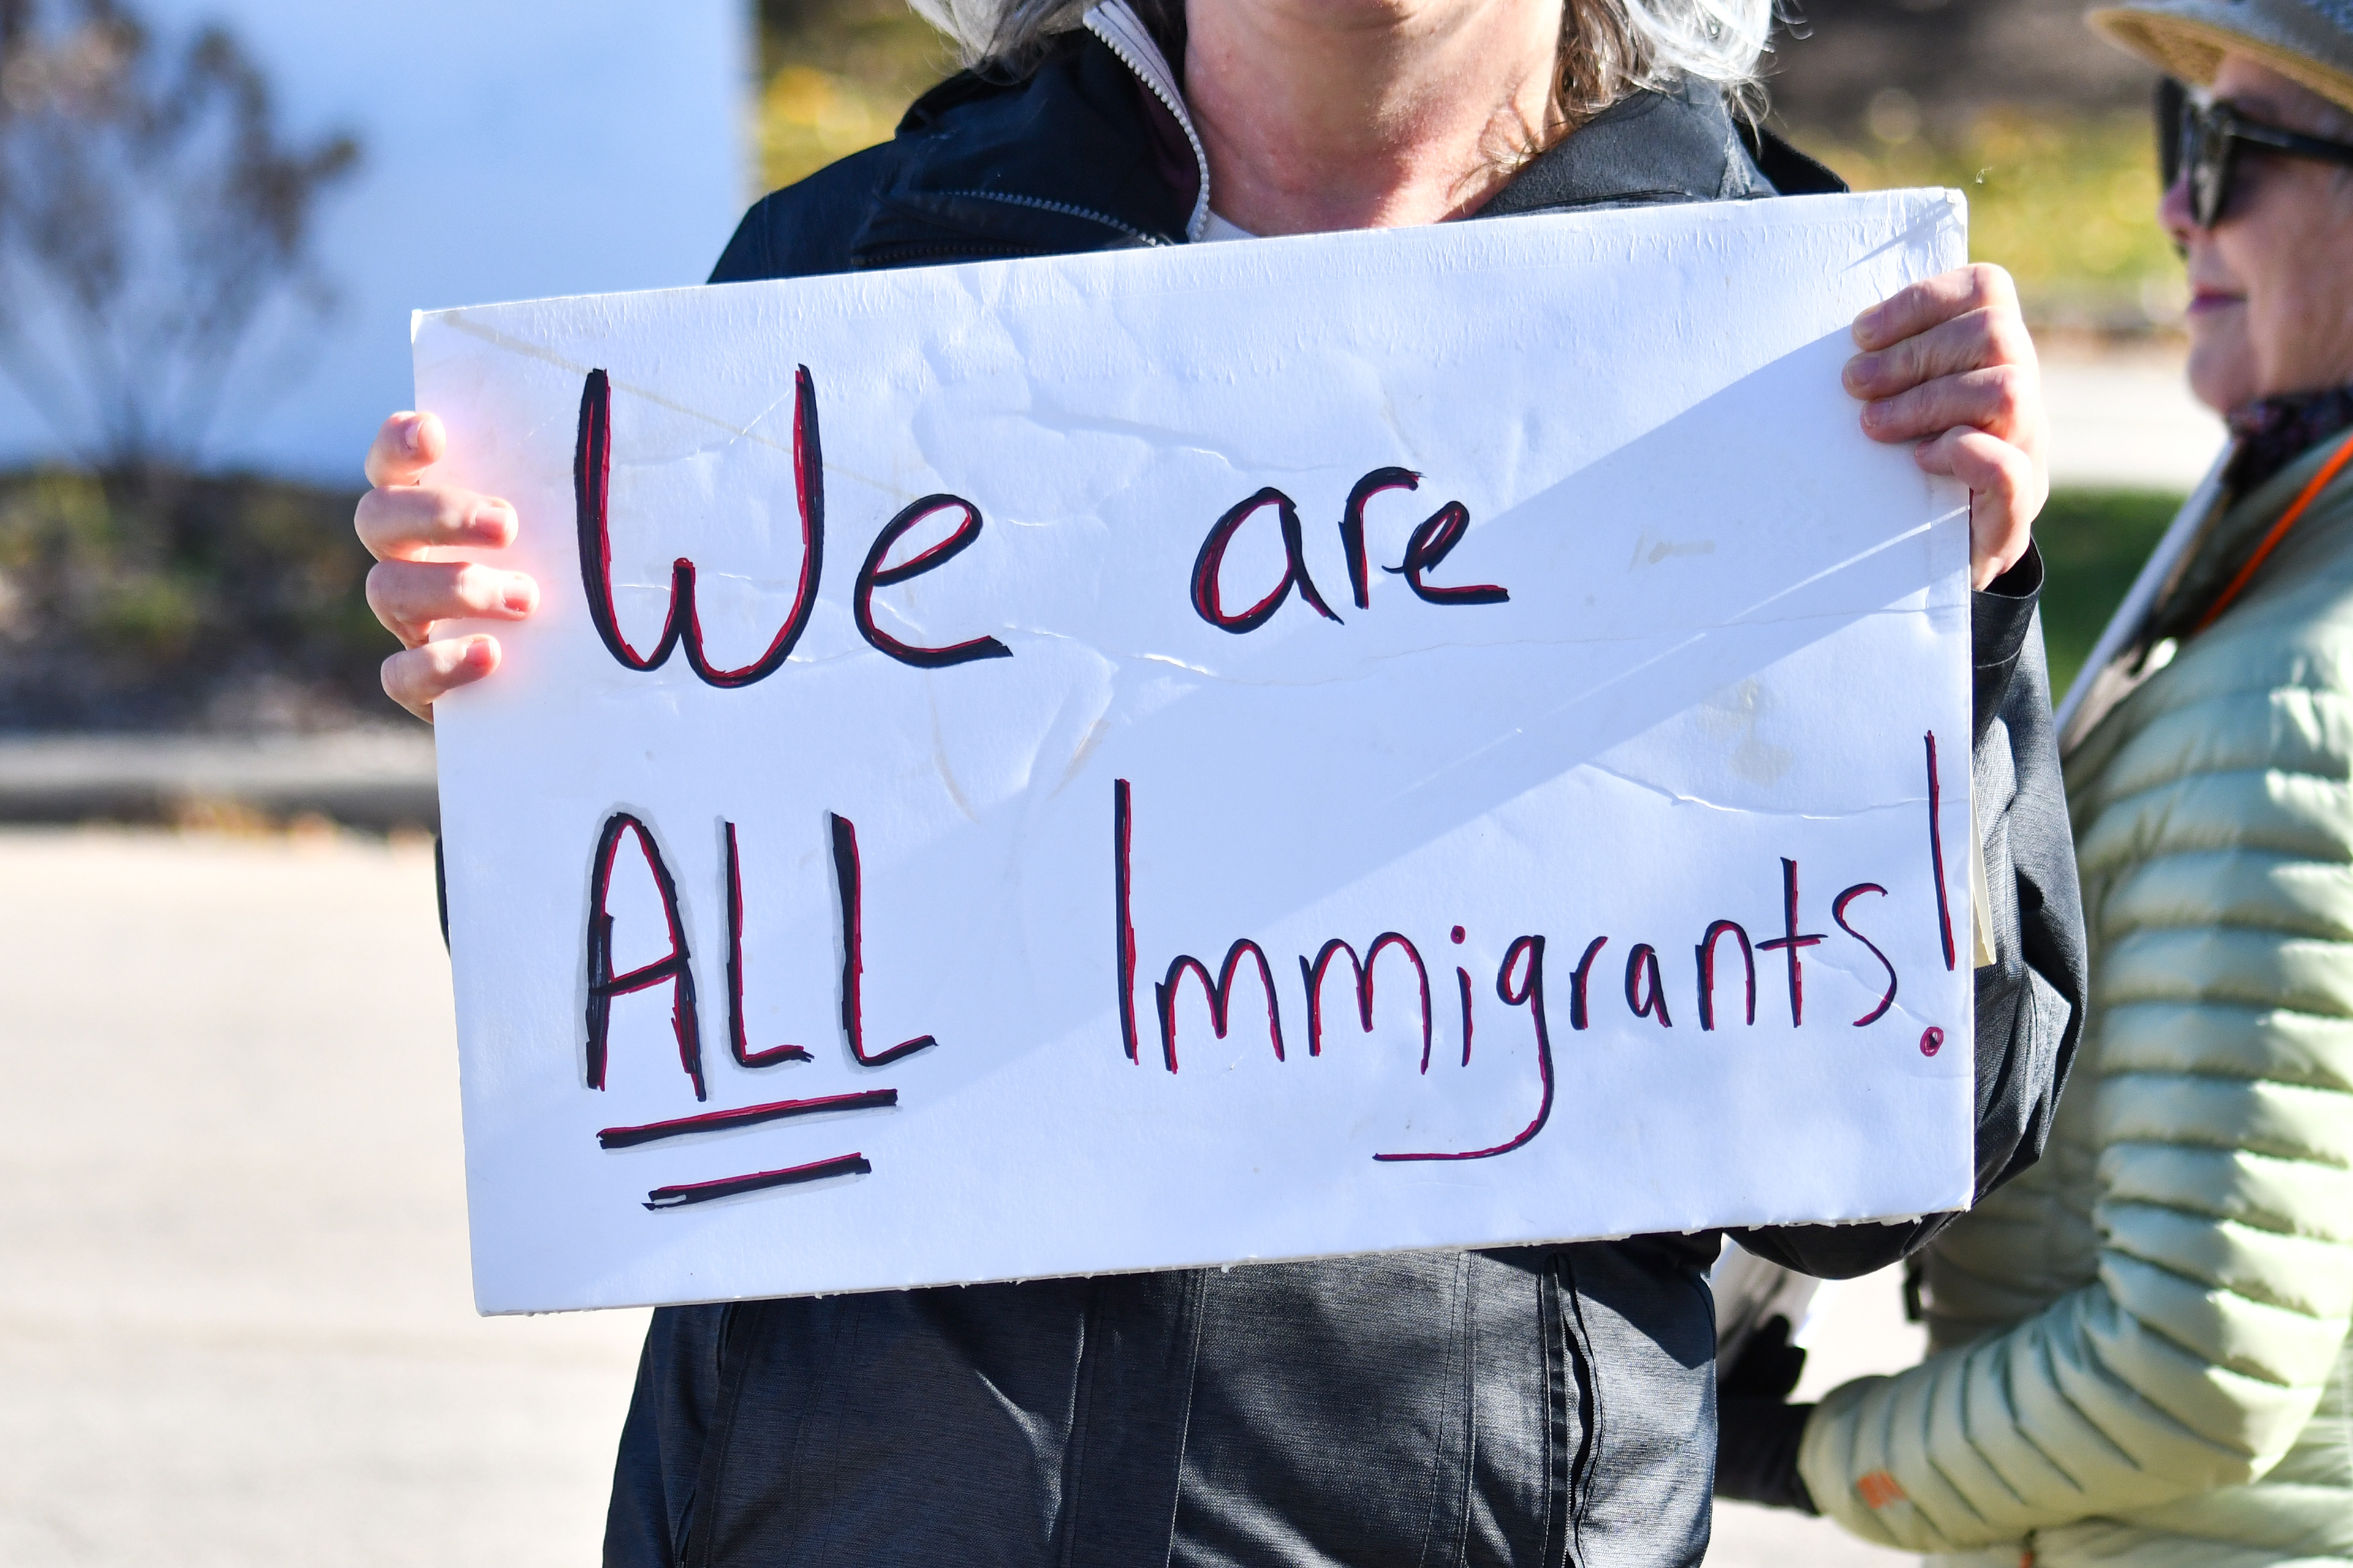 We are
ALL Immigrants!